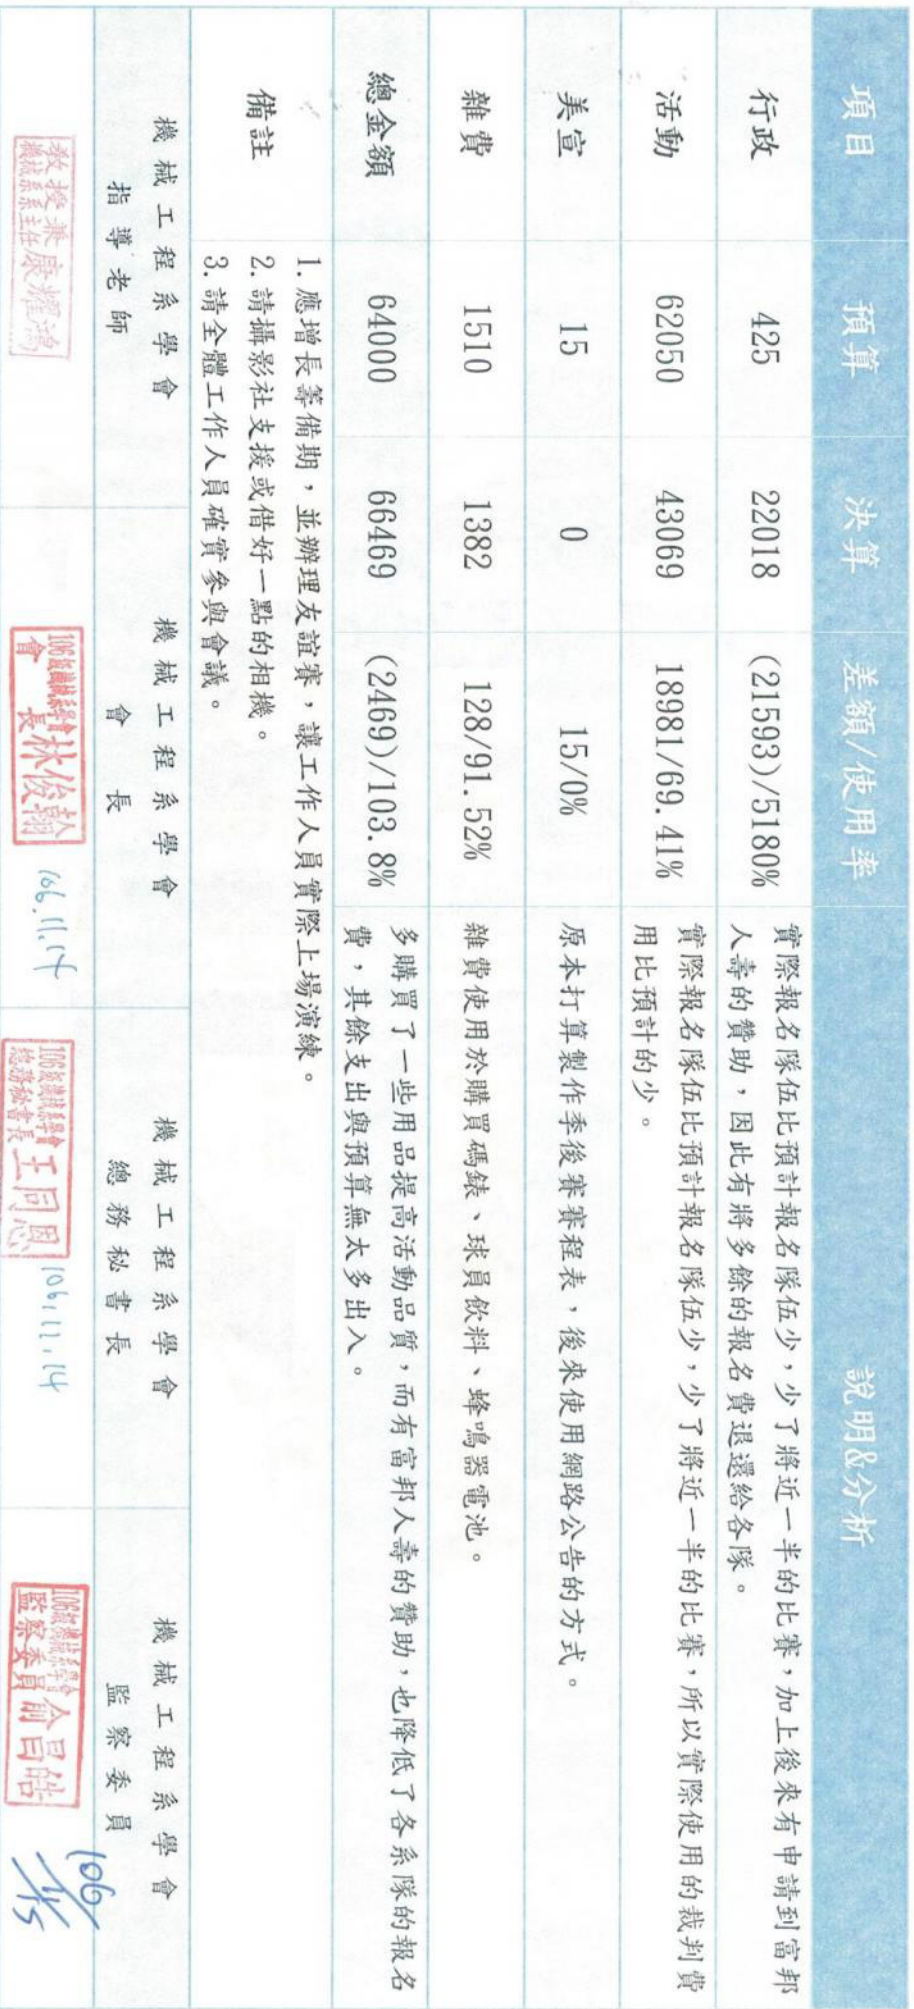 項目 預算 決算 差額/使用率 說明&分析
行政 425 22018 (21593)/5180% 實際報名隊伍比預計報名隊伍少，少了將近一半的比賽，加上後來有申請到富邦
人壽的贊助，因此有將多餘的報名費退還給各隊。
活動 62050 43069 18981/69.41% 實際報名隊伍比預計報名隊伍少，少了將近一半的比賽，所以實際使用的裁判費
用比預計的少。
美宣 15 0 15/0% 原本打算製作季後賽賽程表，後來使用網路公告的方式。
雜費 1510 1382 128/91.52% 雜費使用於購買碼錶、球員飲料、蜂鳴器電池。
總金額 64000 66469 (2469)/103.8% 多購買了一些用品提高活動品質，而有富邦人壽的贊助，也降低了各系隊的報名
費，其餘支出與預算無太多出入。
備註
1.應增長籌備期，並辦理友誼賽，讓工作人員實際上場演練。
2.請攝影社支援或借好一點的相機。
3.請全體工作人員確實參與會議。
機械工程系學會 機械工程系學會 機械工程系學會 機械工程系學會
指導老師 會長 總務秘書長 監察委員
教授兼
機械系系主任 康耀鴻
106級機械系學會
會長 林俊翰 106.11.14
106級機械系學會
總務秘書長 王同恩 106.11.14
106級機械系學會
監察委員 俞昌皓
106/11/15